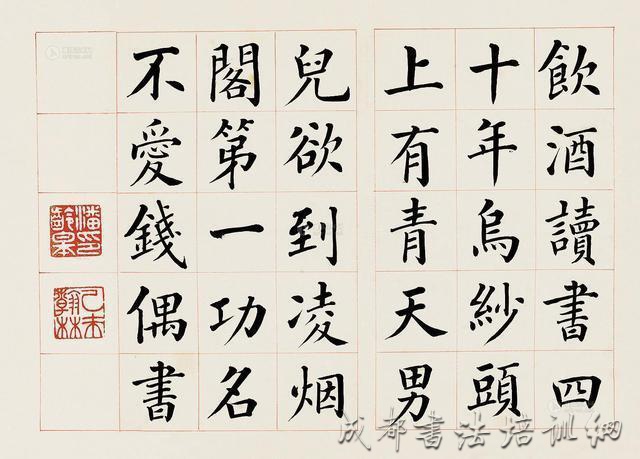 飲酒讀書四
十年烏紗頭
上有青天男
兒欲到凌烟
閣第一功名
不愛錢偶書
潘印齡皋
乙未翰林
成都书法培训网